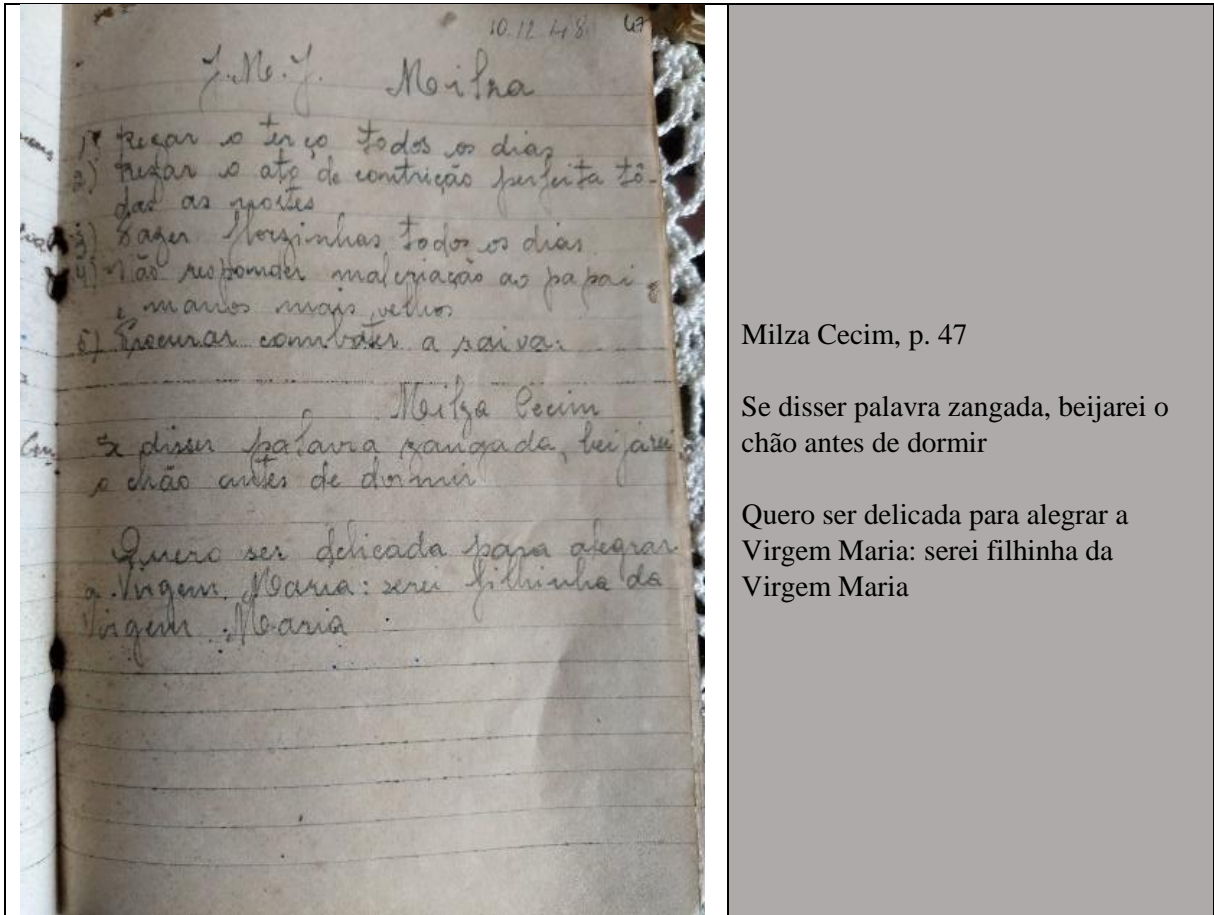 10.12.48 47
J.M.J. Milza
1) Rezar o terço todos os dias
2) Rezar o ato de contrição perfeita tô-
das as noites
3) Fazer florzinhas todos os dias
4) Não responder malcriação ao papai
e manos mais velhos
5) Procurar combater a raiva.
Milza Cecim
Se disser palavra zangada, beijarei
o chão antes de dormir
Quero ser delicada para alegrar
a Virgem Maria: serei filhinha da
Virgem Maria
Milza Cecim, p. 47
Se disser palavra zangada, beijarei o
chão antes de dormir
Quero ser delicada para alegrar a
Virgem Maria: serei filhinha da
Virgem Maria